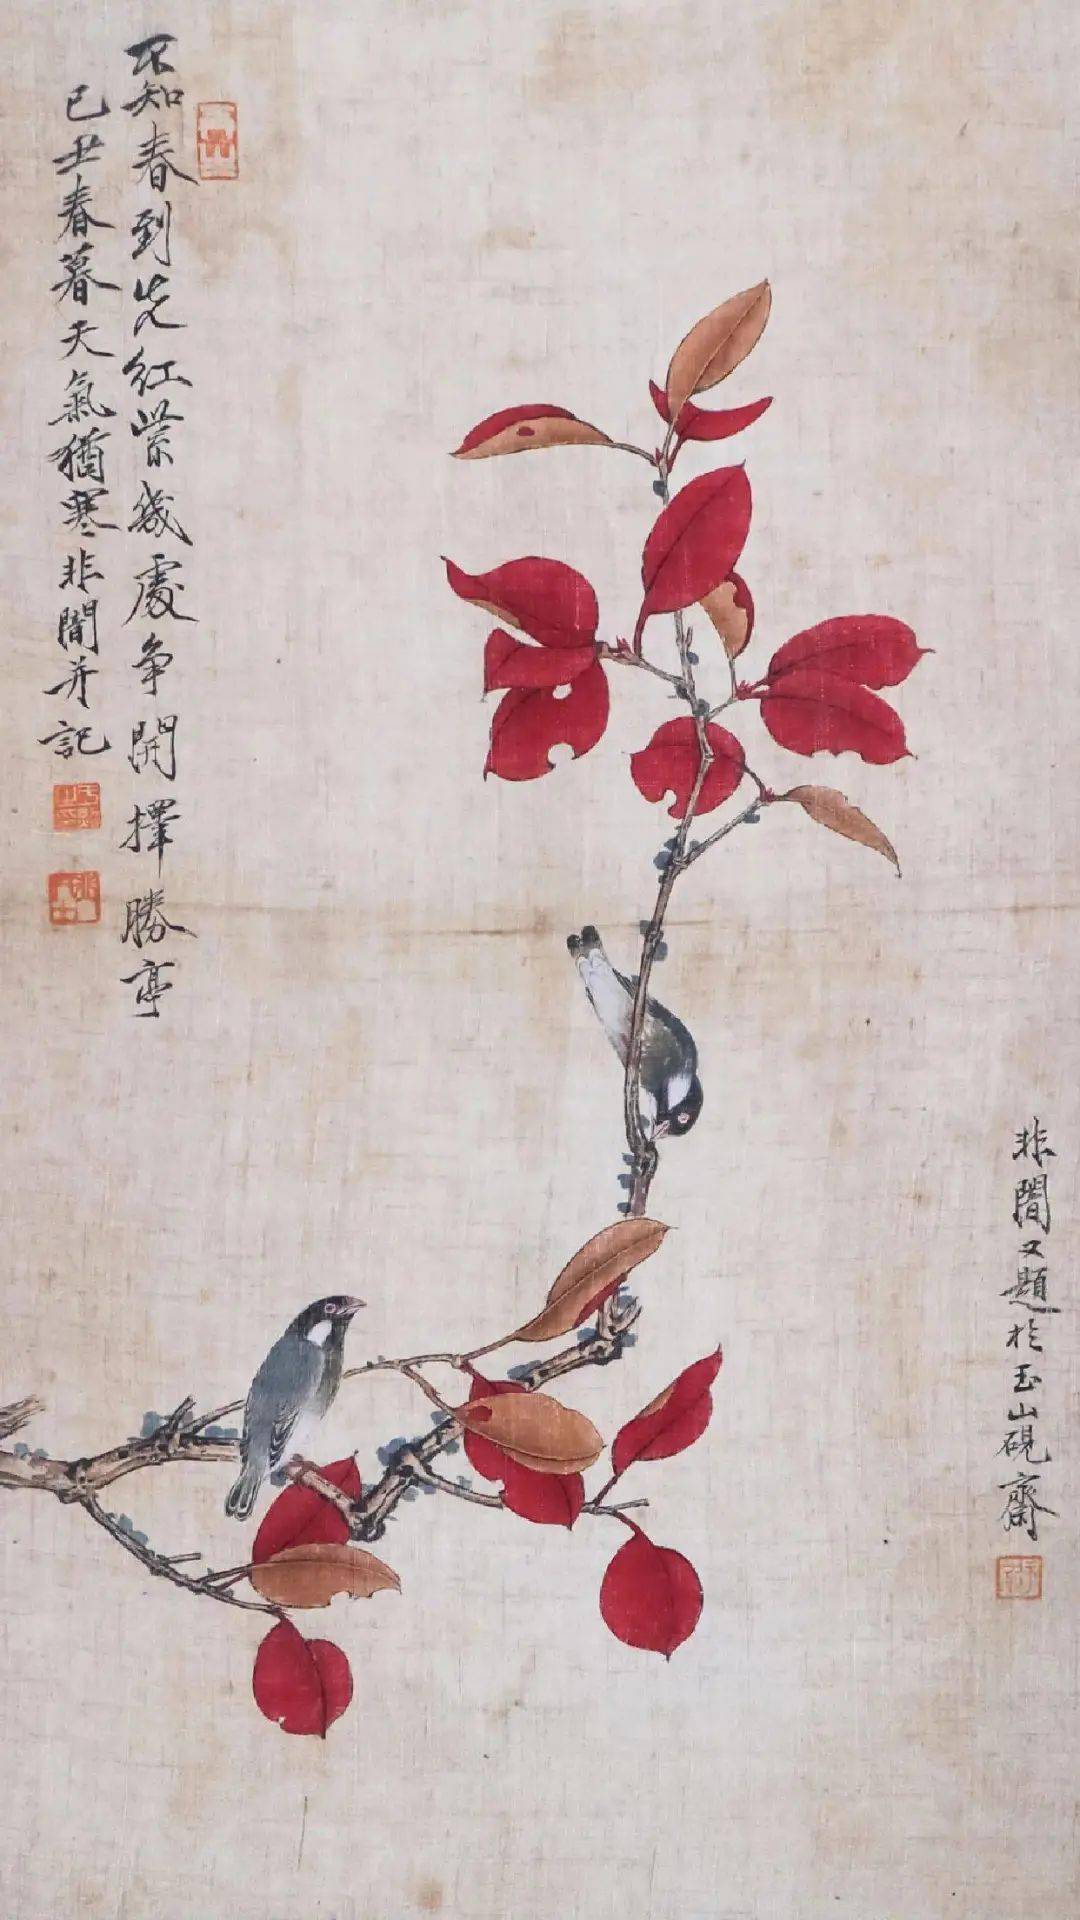 不知春到先紅紫幾處争開擇勝亭
己丑春暮天氣猶寒非闇并記
非闇又題於玉山硯齋